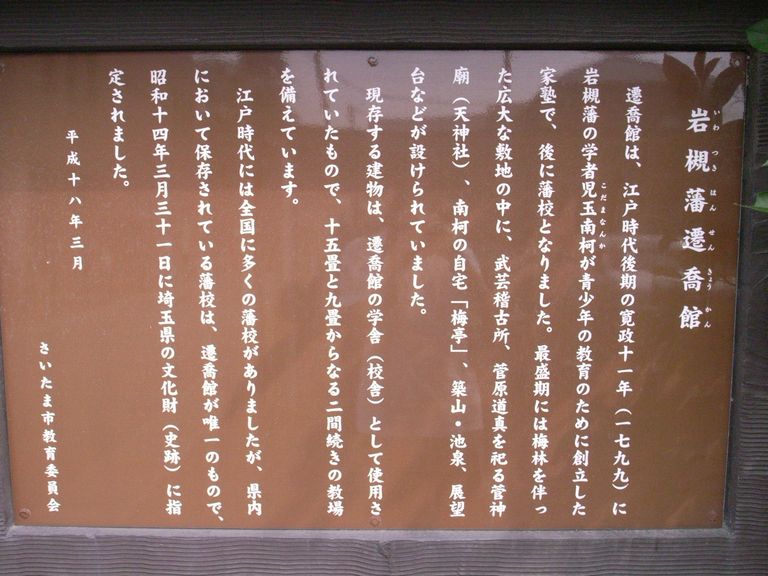 岩槻藩遷喬館
いわつきはんせんきょうかん
遷喬館は、江戸時代後期の寛政十一年(一七九九)に
岩槻藩の学者児玉南柯が青少年の教育のために創立した
こだまなんか
家塾で、後に藩校となりました。最盛期には梅林を伴っ
た広大な敷地の中に、武芸稽古所、菅原道真を祀る菅神
廟(天神社)、南柯の自宅「梅亭」、築山・池泉、展望
台などが設けられていました。
現存する建物は、遷喬館の学舎(校舎)として使用さ
れていたもので、十五畳と九畳からなる二間続きの教場
を備えています。
江戸時代には全国に多くの藩校がありましたが、県内
において保存されている藩校は、遷喬館が唯一のもので、
昭和十四年三月三十一日に埼玉県の文化財(史跡)に指
定されました。
平成十八年三月
さいたま市教育委員会